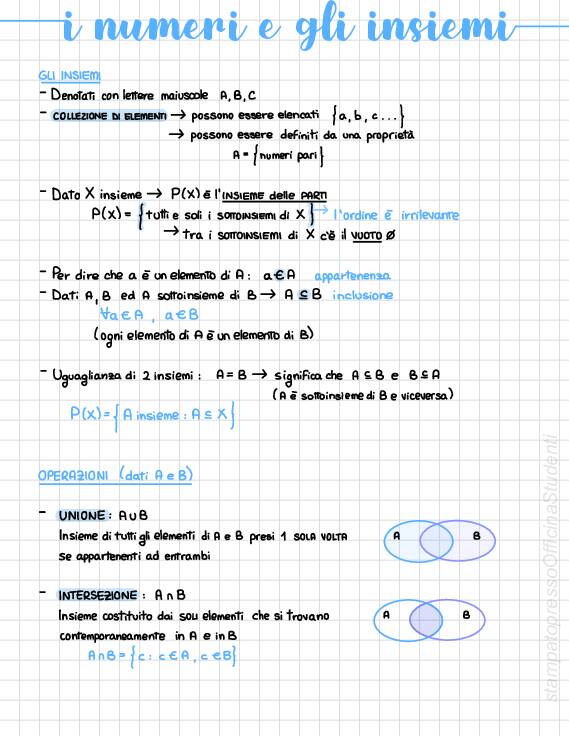 i numeri e gli insiemi
GLI INSIEMI
- Denotati con lettere maiuscole A, B, C
- COLLEZIONE DI ELEMENTI → possono essere elencati {a, b, c ...}
→ possono essere definiti da una proprietà
A = {numeri pari}
- Dato X insieme → P(X) è l'INSIEME delle PARTI
P(X) = {tutti e soli i SOTTOINSIEMI di X} → l'ordine è irrilevante
→ tra i SOTTOINSIEMI di X c'è il VUOTO ∅
- Per dire che a è un elemento di A: a ∈ A appartenenza
- Dati A, B ed A sottoinsieme di B → A ⊆ B inclusione
∀a ∈ A , a ∈ B
(ogni elemento di A è un elemento di B)
- Uguaglianza di 2 insiemi : A = B → significa che A ⊆ B e B ⊆ A
(A è sottoinsieme di B e viceversa)
P(X) = {A insieme : A ⊆ X}
OPERAZIONI (dati A e B)
- UNIONE : A ∪ B
Insieme di tutti gli elementi di A e B presi 1 SOLA VOLTA
se appartenenti ad entrambi
A B
- INTERSEZIONE : A ∩ B
Insieme costituito dai soli elementi che si trovano
contemporaneamente in A e in B
A ∩ B = {c : c ∈ A , c ∈ B}
A B
stampatopressoOfficinaStudenti